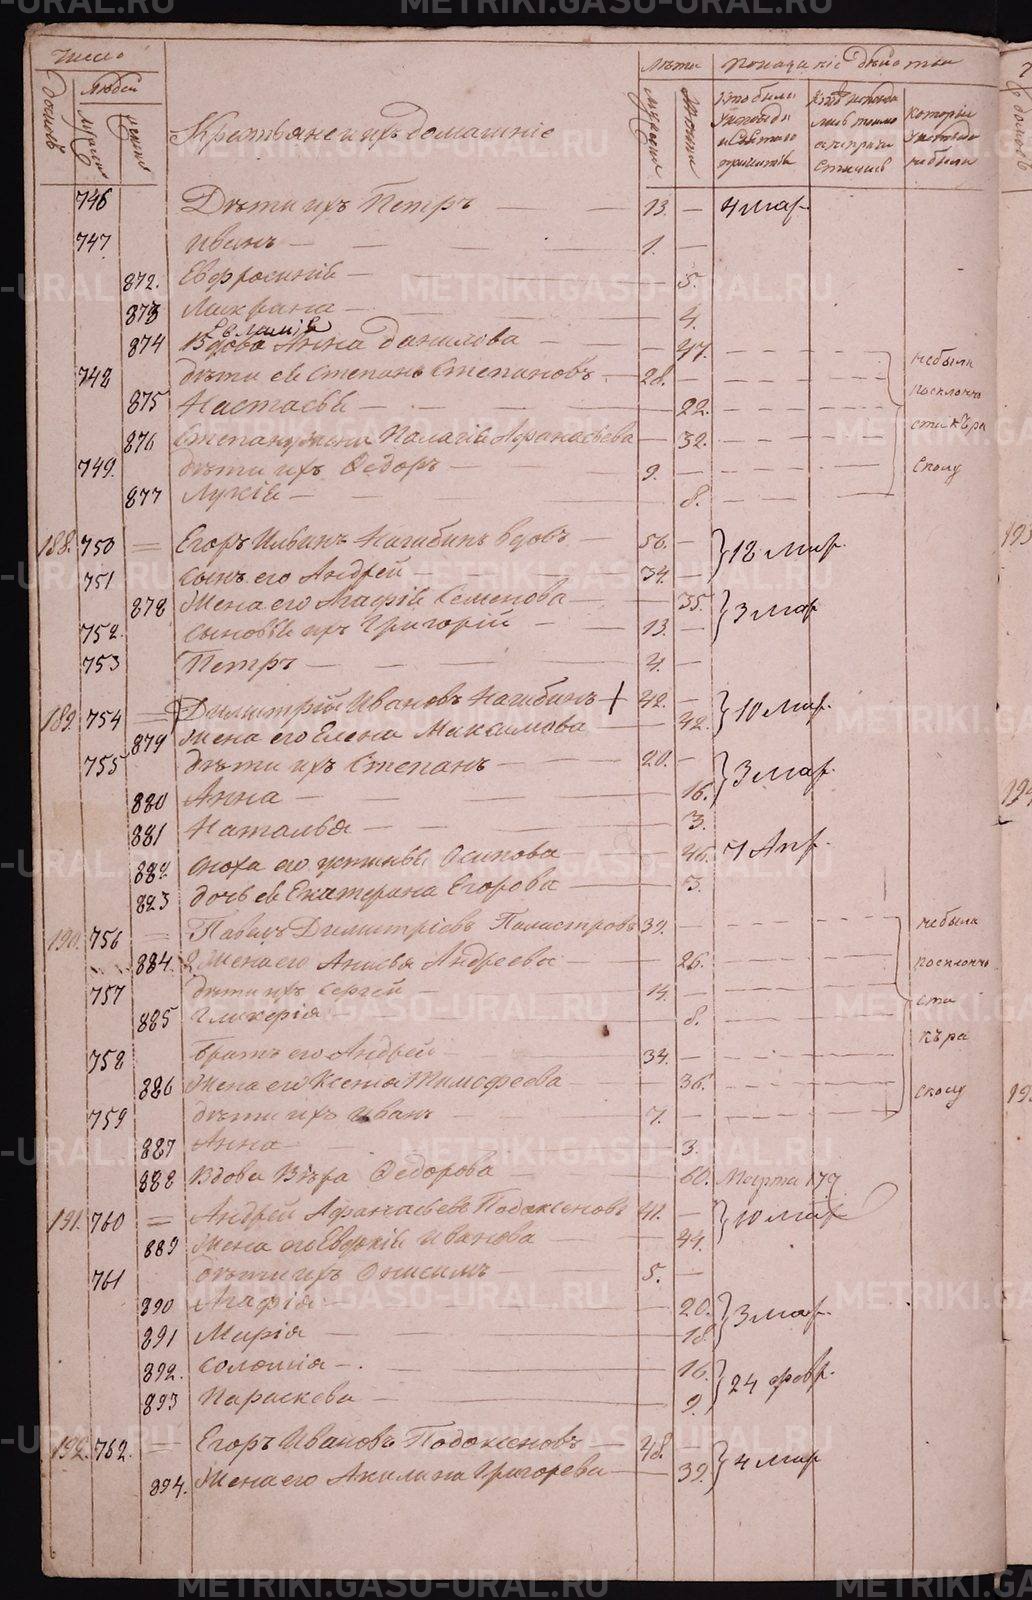 Число
домовъ
Людей
мужеска
женска
Крестьяне и ихъ домашніе
Лѣта
мужеска
женска
Показаніе дѣйства
Кто были у исповѣди и Святаго причастія
Кто исповѣдались токмо а не причастились
Которые у исповѣди не были
746 Дѣти ихъ Петръ 13. 4 Мар.
747. Иванъ 1.
872. Евфросинія 5.
873 Макрина 4.
874 Вдова Анна Данилова 47.
748 дѣти ея Степанъ Степановъ 28. не были
875 Настасья 22. по склонно
876 Степану жена Палагія Афанасьева 32. сти къ ра
749. дѣти ихъ Ѳедоръ 9. сколу
877 Лукія 8.
188. 750 Егоръ Ильинъ Нагибинъ вдовъ 56. 12 Мар.
751 сынъ его Андрей 34.
878 Жена его Агафія Семенова 35. 3 Мар
752. сыновья ихъ Григорій 13.
753 Петръ 4.
189. 754 Димитрій Ивановъ Нагибинъ 42. 10 Мар.
879 жена его Елена Максимова 42.
755 дѣти ихъ Степанъ 20. 3 Мар.
880 Анна 16.
881 Наталья 3.
882 сноха его Устинья Осипова 46. 7 Апр.
883 дочь ея Екатерина Егорова 3.
190. 756 Павелъ Димитріевъ 39. не были
884. 2 жена его Анисья Андреева 26. по склонно
757 дѣти ихъ Сергей 14. сти
885 Гликерія 8. къ ра
758 братъ его Андрей 34.
886 жена его Ксенія Тимофеева 36. сколу
759 дѣти ихъ Иванъ 7.
887 Анна 3.
888 Вдова Вѣра Ѳедорова 60. Марта 17
191. 760 Андрей Афанасьевъ Подоксеновъ 41. 10 Мар
889 жена его Евдокія Иванова 44.
761 дѣти ихъ Онисимъ 5.
890 Агафія 20. 3 Мар.
891 Марія 18
892. Соломія 16. 24 февр.
893 Параскева 9.
192. 762. Егоръ Ивановъ Подоксеновъ 48. 4 Мар
894. Жена его Акилина Григорьева 39.
METRIKI.GASO-URAL.RU